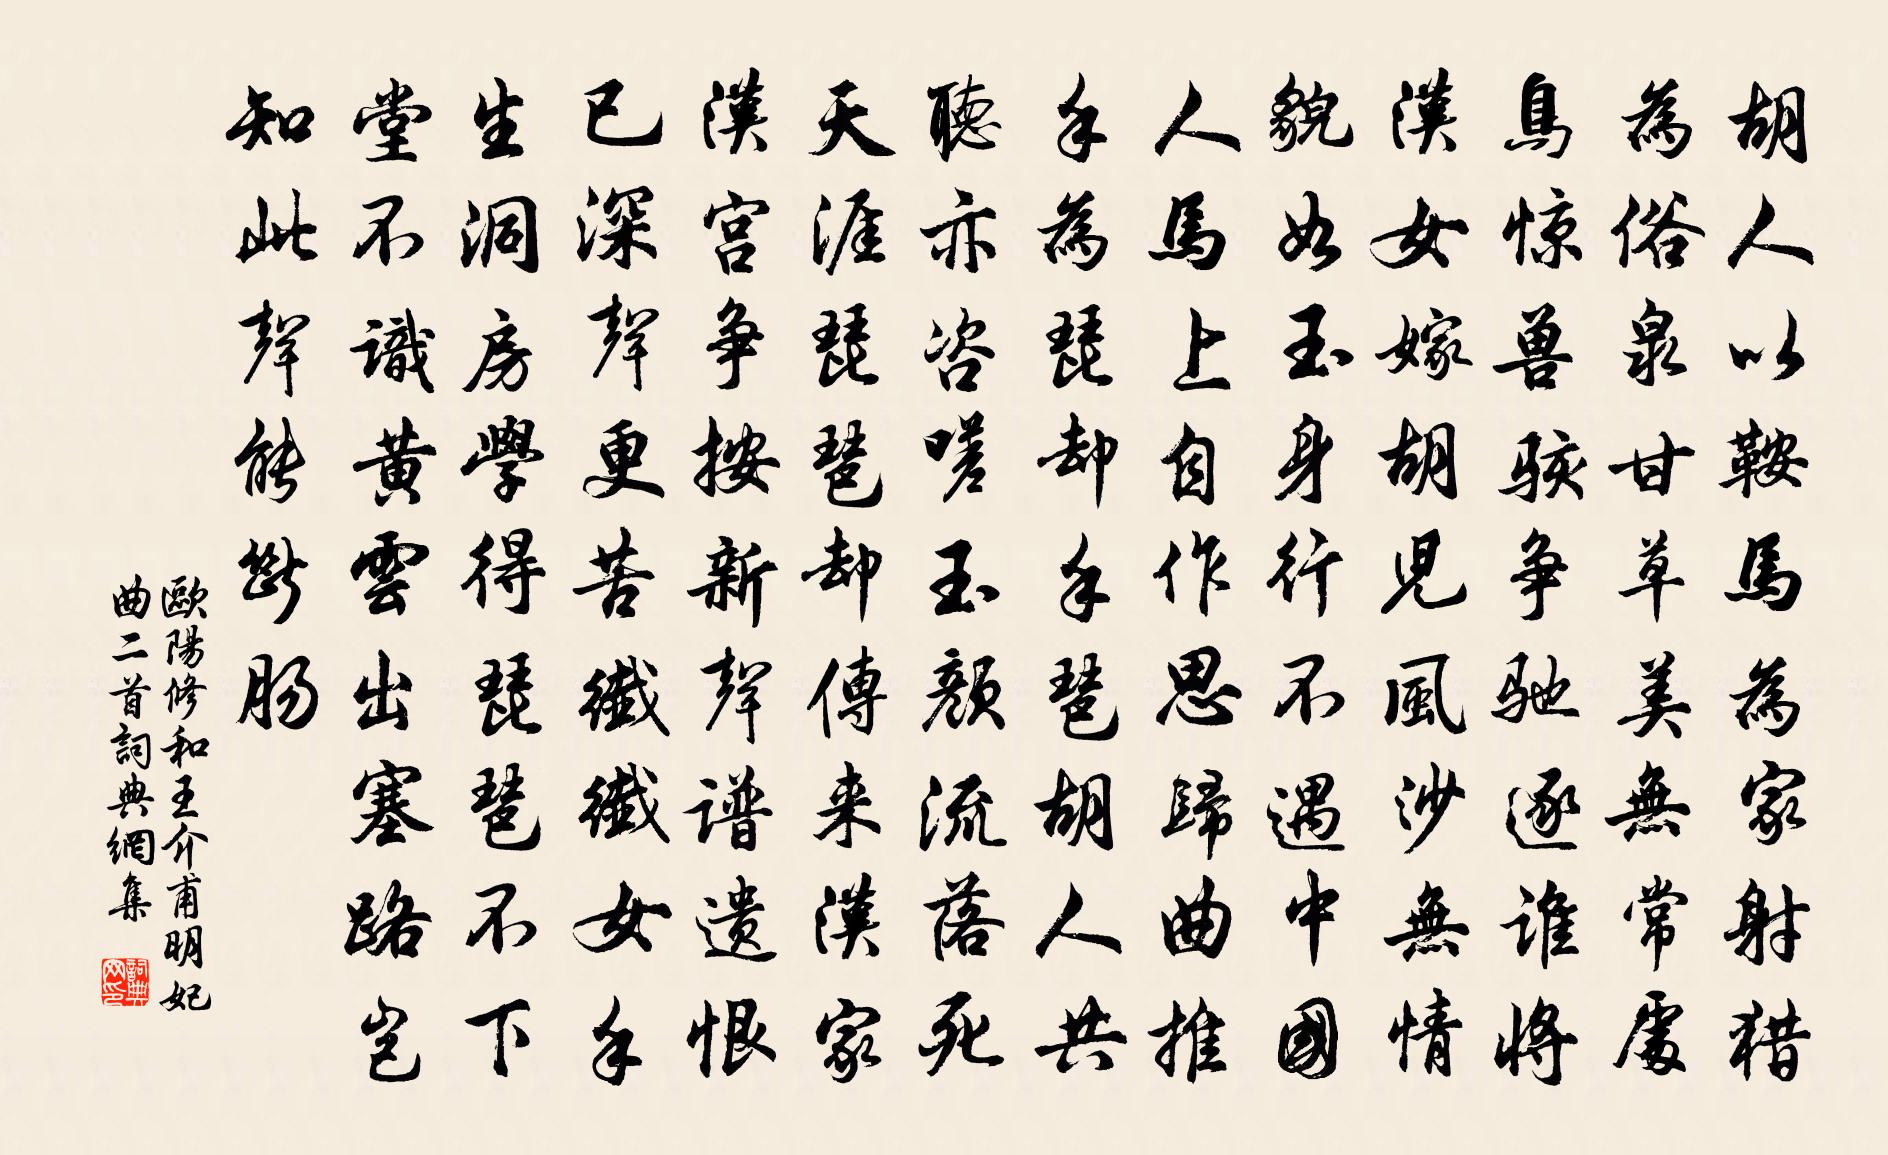 胡人以鞍馬為家射猎
為俗泉甘草美無常處
鳥惊兽骇争馳逐谁將
漢女嫁胡兒風沙無情
貌如玉身行不遇中國
人馬上自作思歸曲推
手為琵却手琶胡人共
聽亦咨嗟玉顏流落死
天涯琵琶却傳来漢家
漢宮争按新聲譜遗恨
已深聲更苦纖纖女手
生洞房學得琵琶不下
堂不識黃雲出塞路岂
知此聲能斷肠
歐陽修和王介甫明妃
曲二首詞典網集
詞典网印